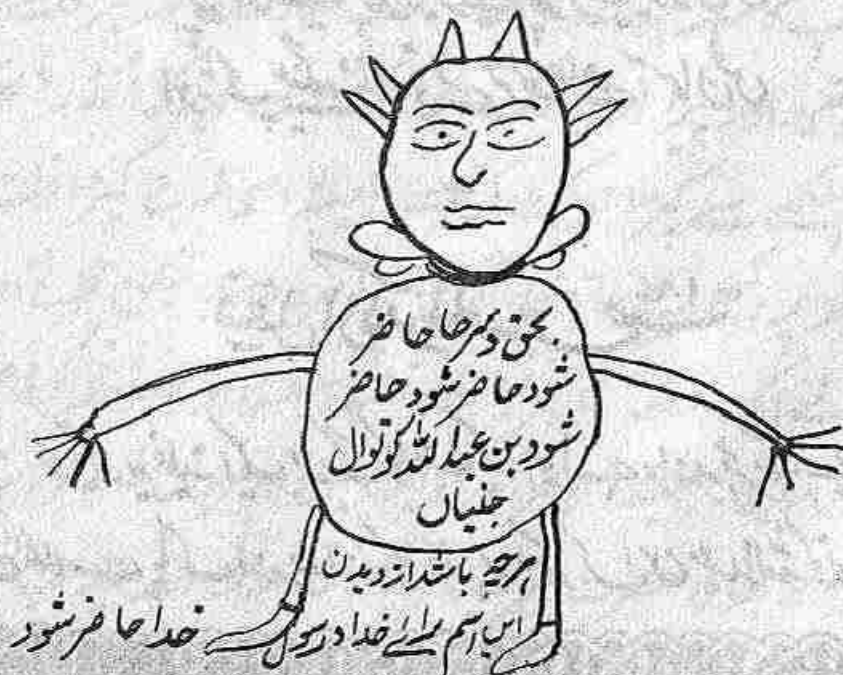 بحق دہرحا حاضر
شود حاضر شود حاضر
شود بن عبداللہ کوتوال
جنیاں
ہرچہ باشد از دیدن
ایں اسم برائے خدا و رسول
خدا حاضر شود